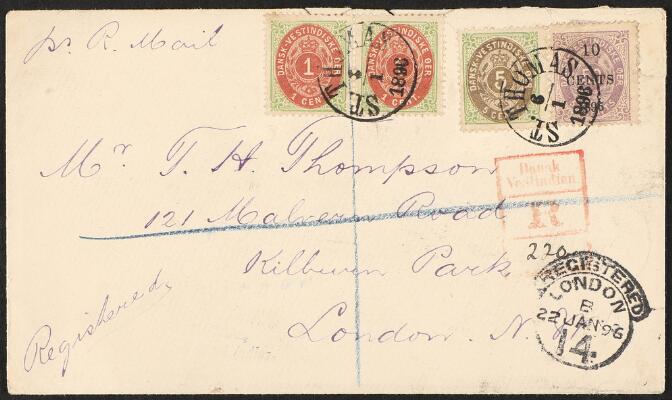 pr. R. Mail
DANSK-VESTINDISKE ØER
1
1 CENT
DANSK-VESTINDISKE ØER
1 CENT
ST. THOMAS
1
1896
5
10
CENTS
ST. THOMAS
6
1
1896
Mr. T. H. Thompson
121 Malvern Road
Kilburn Park,
London. N.
Registered,
Dansk
Vestindien.
R
220
REGISTERED
LONDON
B
22 JAN 96
14